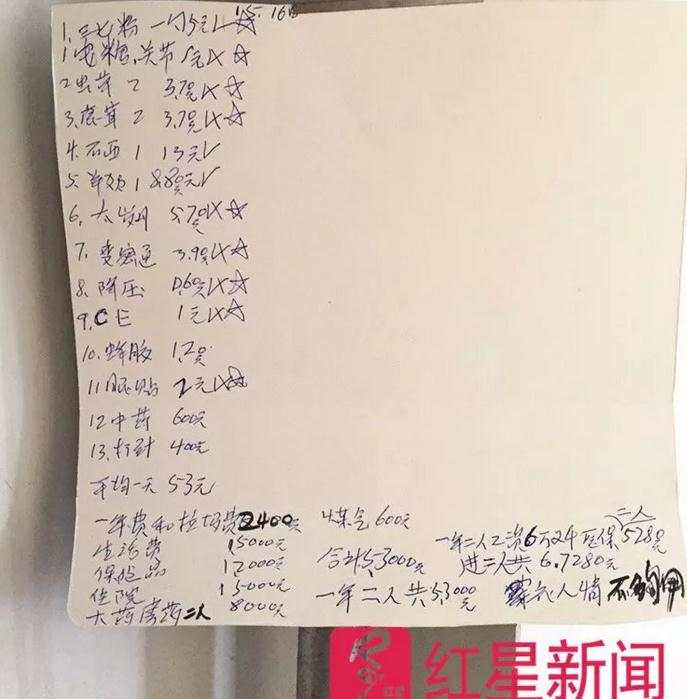 15.16日
1.三七粉 一勺5元
1电糖.关节 1元
2虫草 2 3.7元
3.鹿茸 2 3.7元
4.石 1 13元
5. 1 8.80元
6. 5.70元
7. 通 3.9元
8.降压 0.60元
9.CE 1元
10.蜂胶 1.2元
11 贴 2元
12中药 600元
13.打针 400元
平均一天 53元
一年费和垃圾费2400元 煤气600元
生活费 15000元
保险品 12000元
住院 15000元
大药房药二人 8000元
合计53000元
一年二人共53000元
二人
一年二人工资6万2千 医保5280元
进二人共 6.7280元
衣人情 不够用
红星新闻